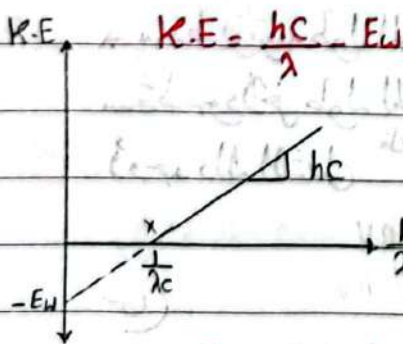 K.E
K.E = hc/λ - Ew
hc
x
1/λc
1/λ
-Ew